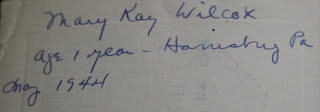 Mary Kay Wilcox
age 1 year - Harrisburg Pa
May 1944